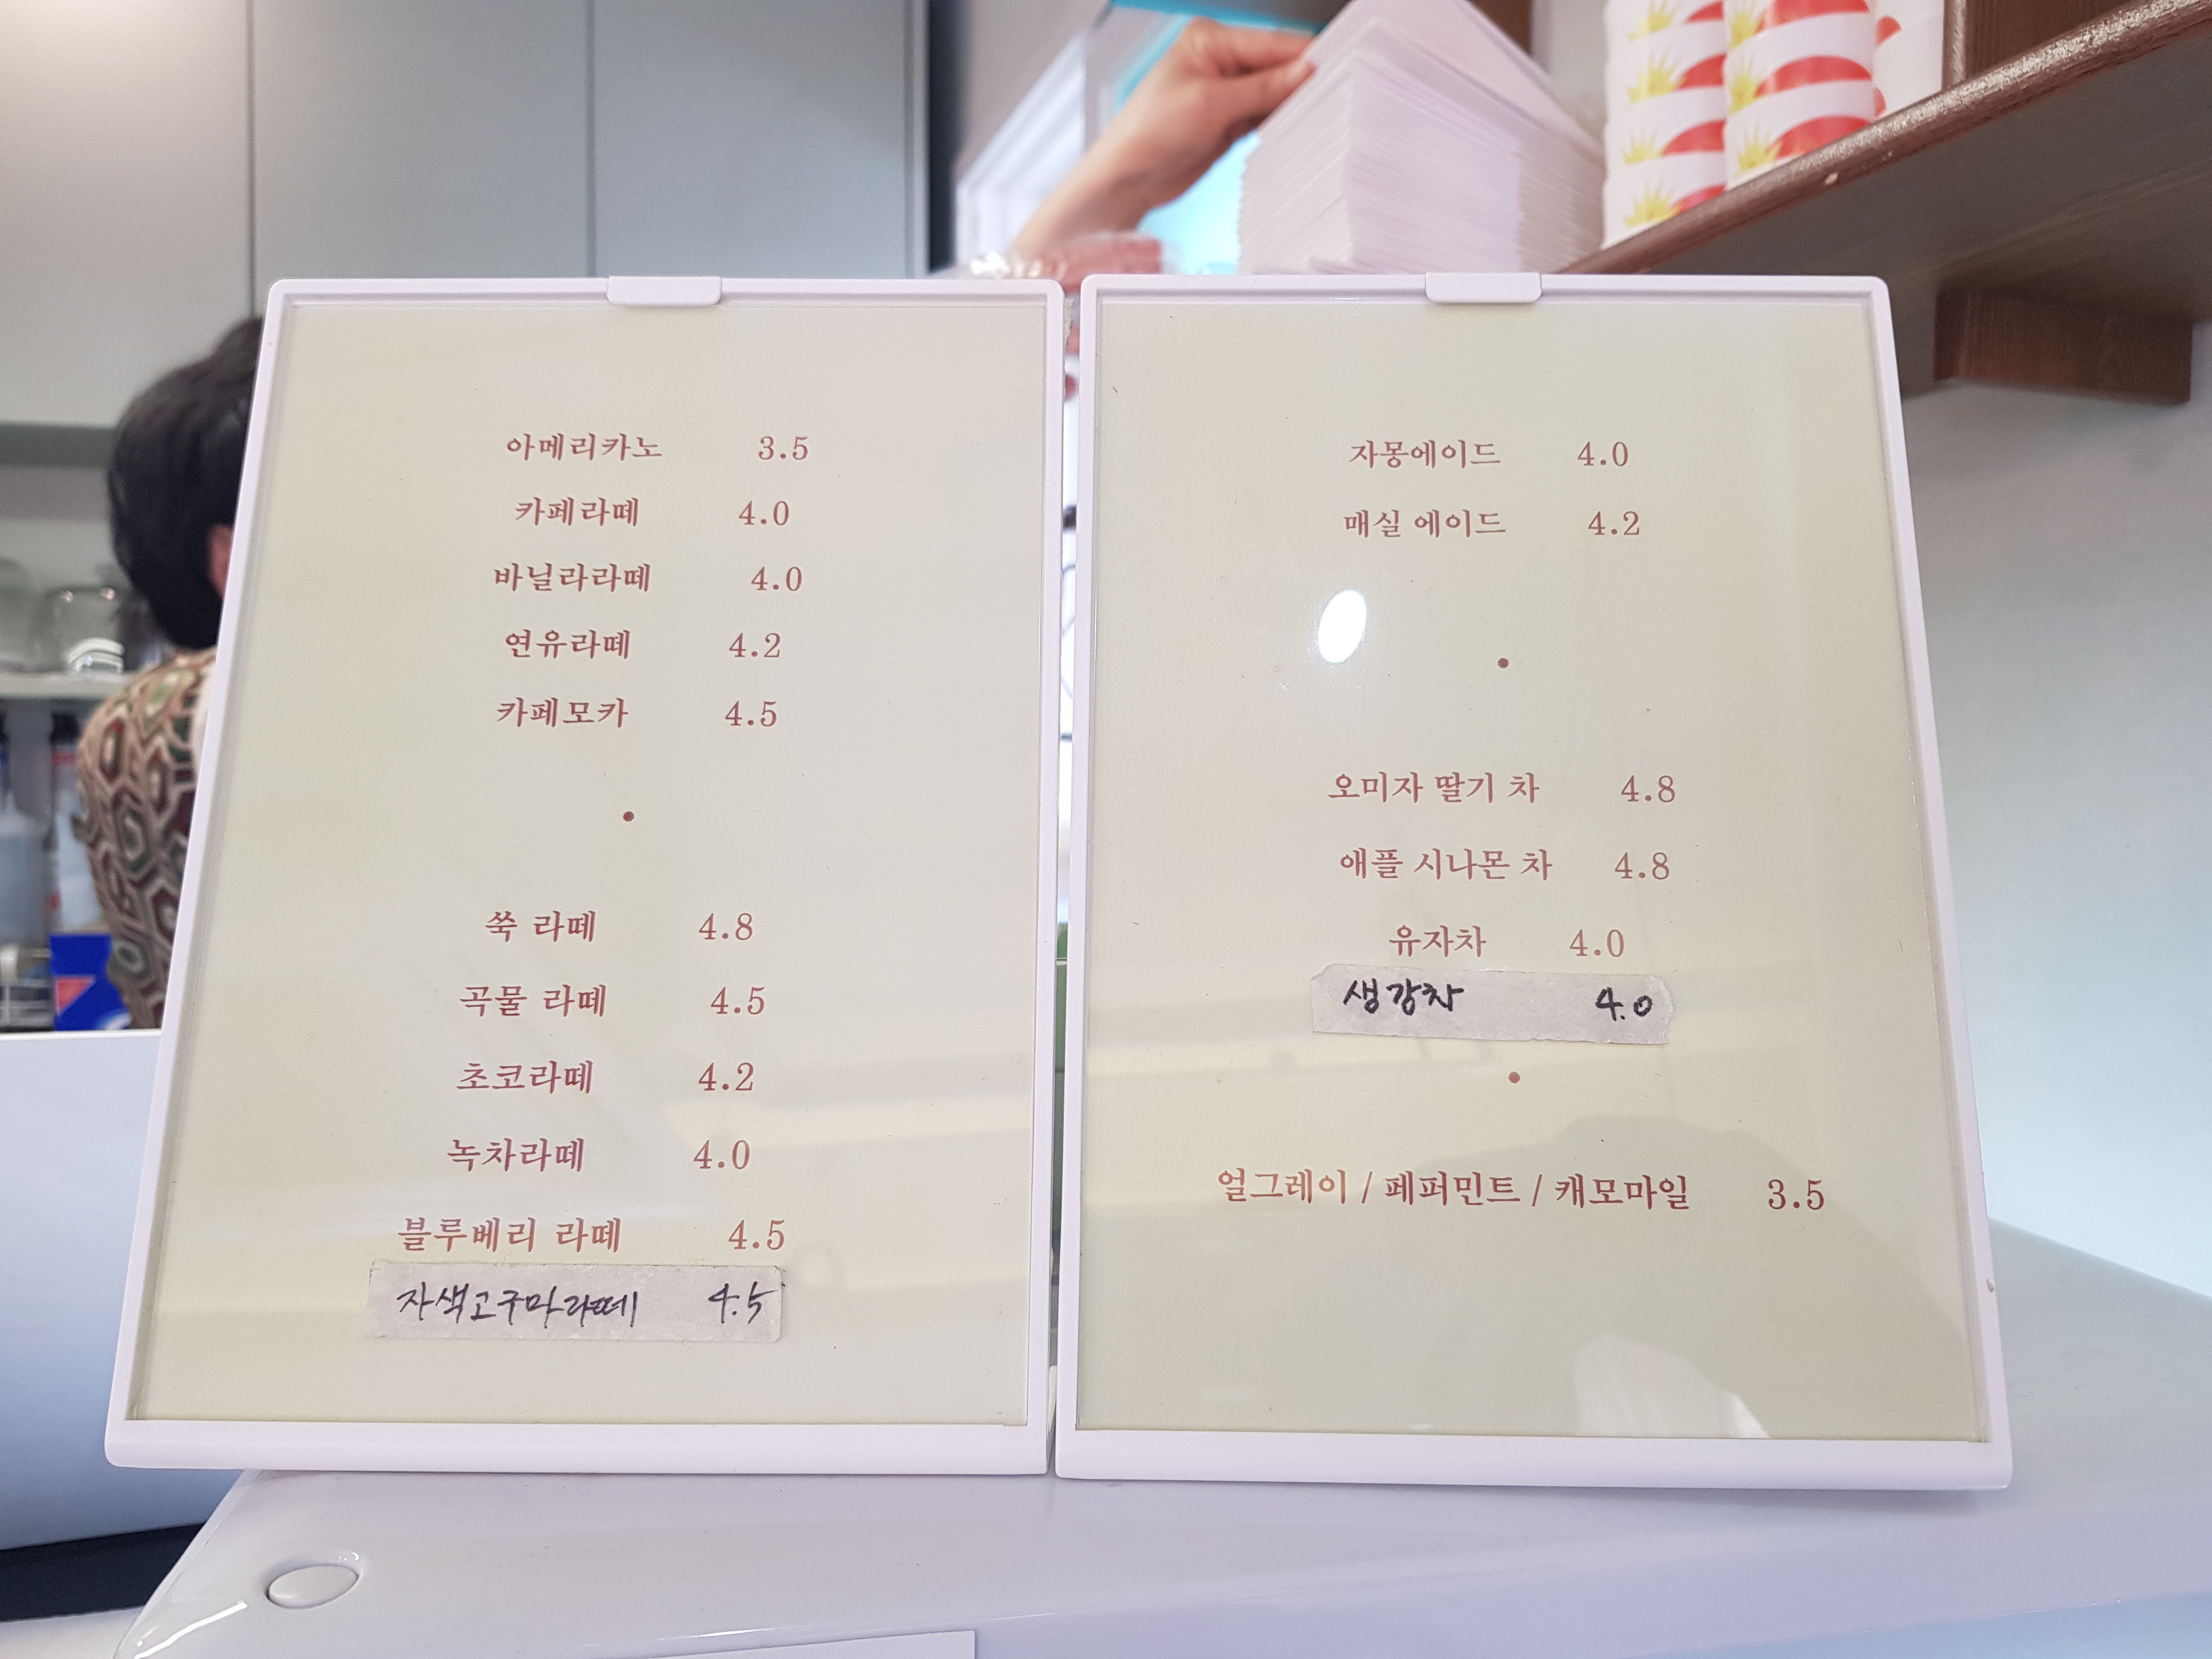 아메리카노 3.5
카페라떼 4.0
바닐라라떼 4.0
연유라떼 4.2
카페모카 4.5
•
쑥 라떼 4.8
곡물 라떼 4.5
초코라떼 4.2
녹차라떼 4.0
블루베리 라떼 4.5
자색고구마라떼 4.5
자몽에이드 4.0
매실 에이드 4.2
•
오미자 딸기 차 4.8
애플 시나몬 차 4.8
유자차 4.0
생강차 4.0
•
얼그레이 / 페퍼민트 / 캐모마일 3.5